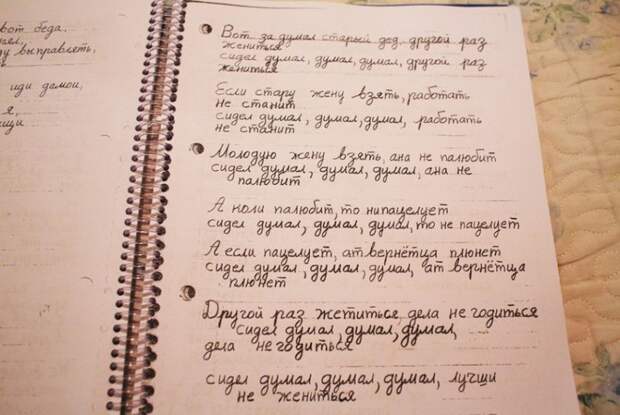 вот беда.
выправлять,
иди домой,
я,
Вот за думал старый дед, другой раз
жениться
сидел думал, думал, думал, другой раз
жениться
Если стару жену взять, работать
не станит
сидел думал, думал, думал, работать
не станит
Молодую жену взять, ана не палюбит
сидел думал, думал, думал, ана не
палюбит
А коли палюбит, то нипацелует
сидел думал, думал, думал, то не пацелует
А если пацелует, атвернётца плюнет
сидел думал, думал, думал, ат вернётца
плюнет
Другой раз жетиться дела не годиться
сидел думал, думал, думал,
дела не годиться
сидел думал, думал, думал, лучши
не жениться